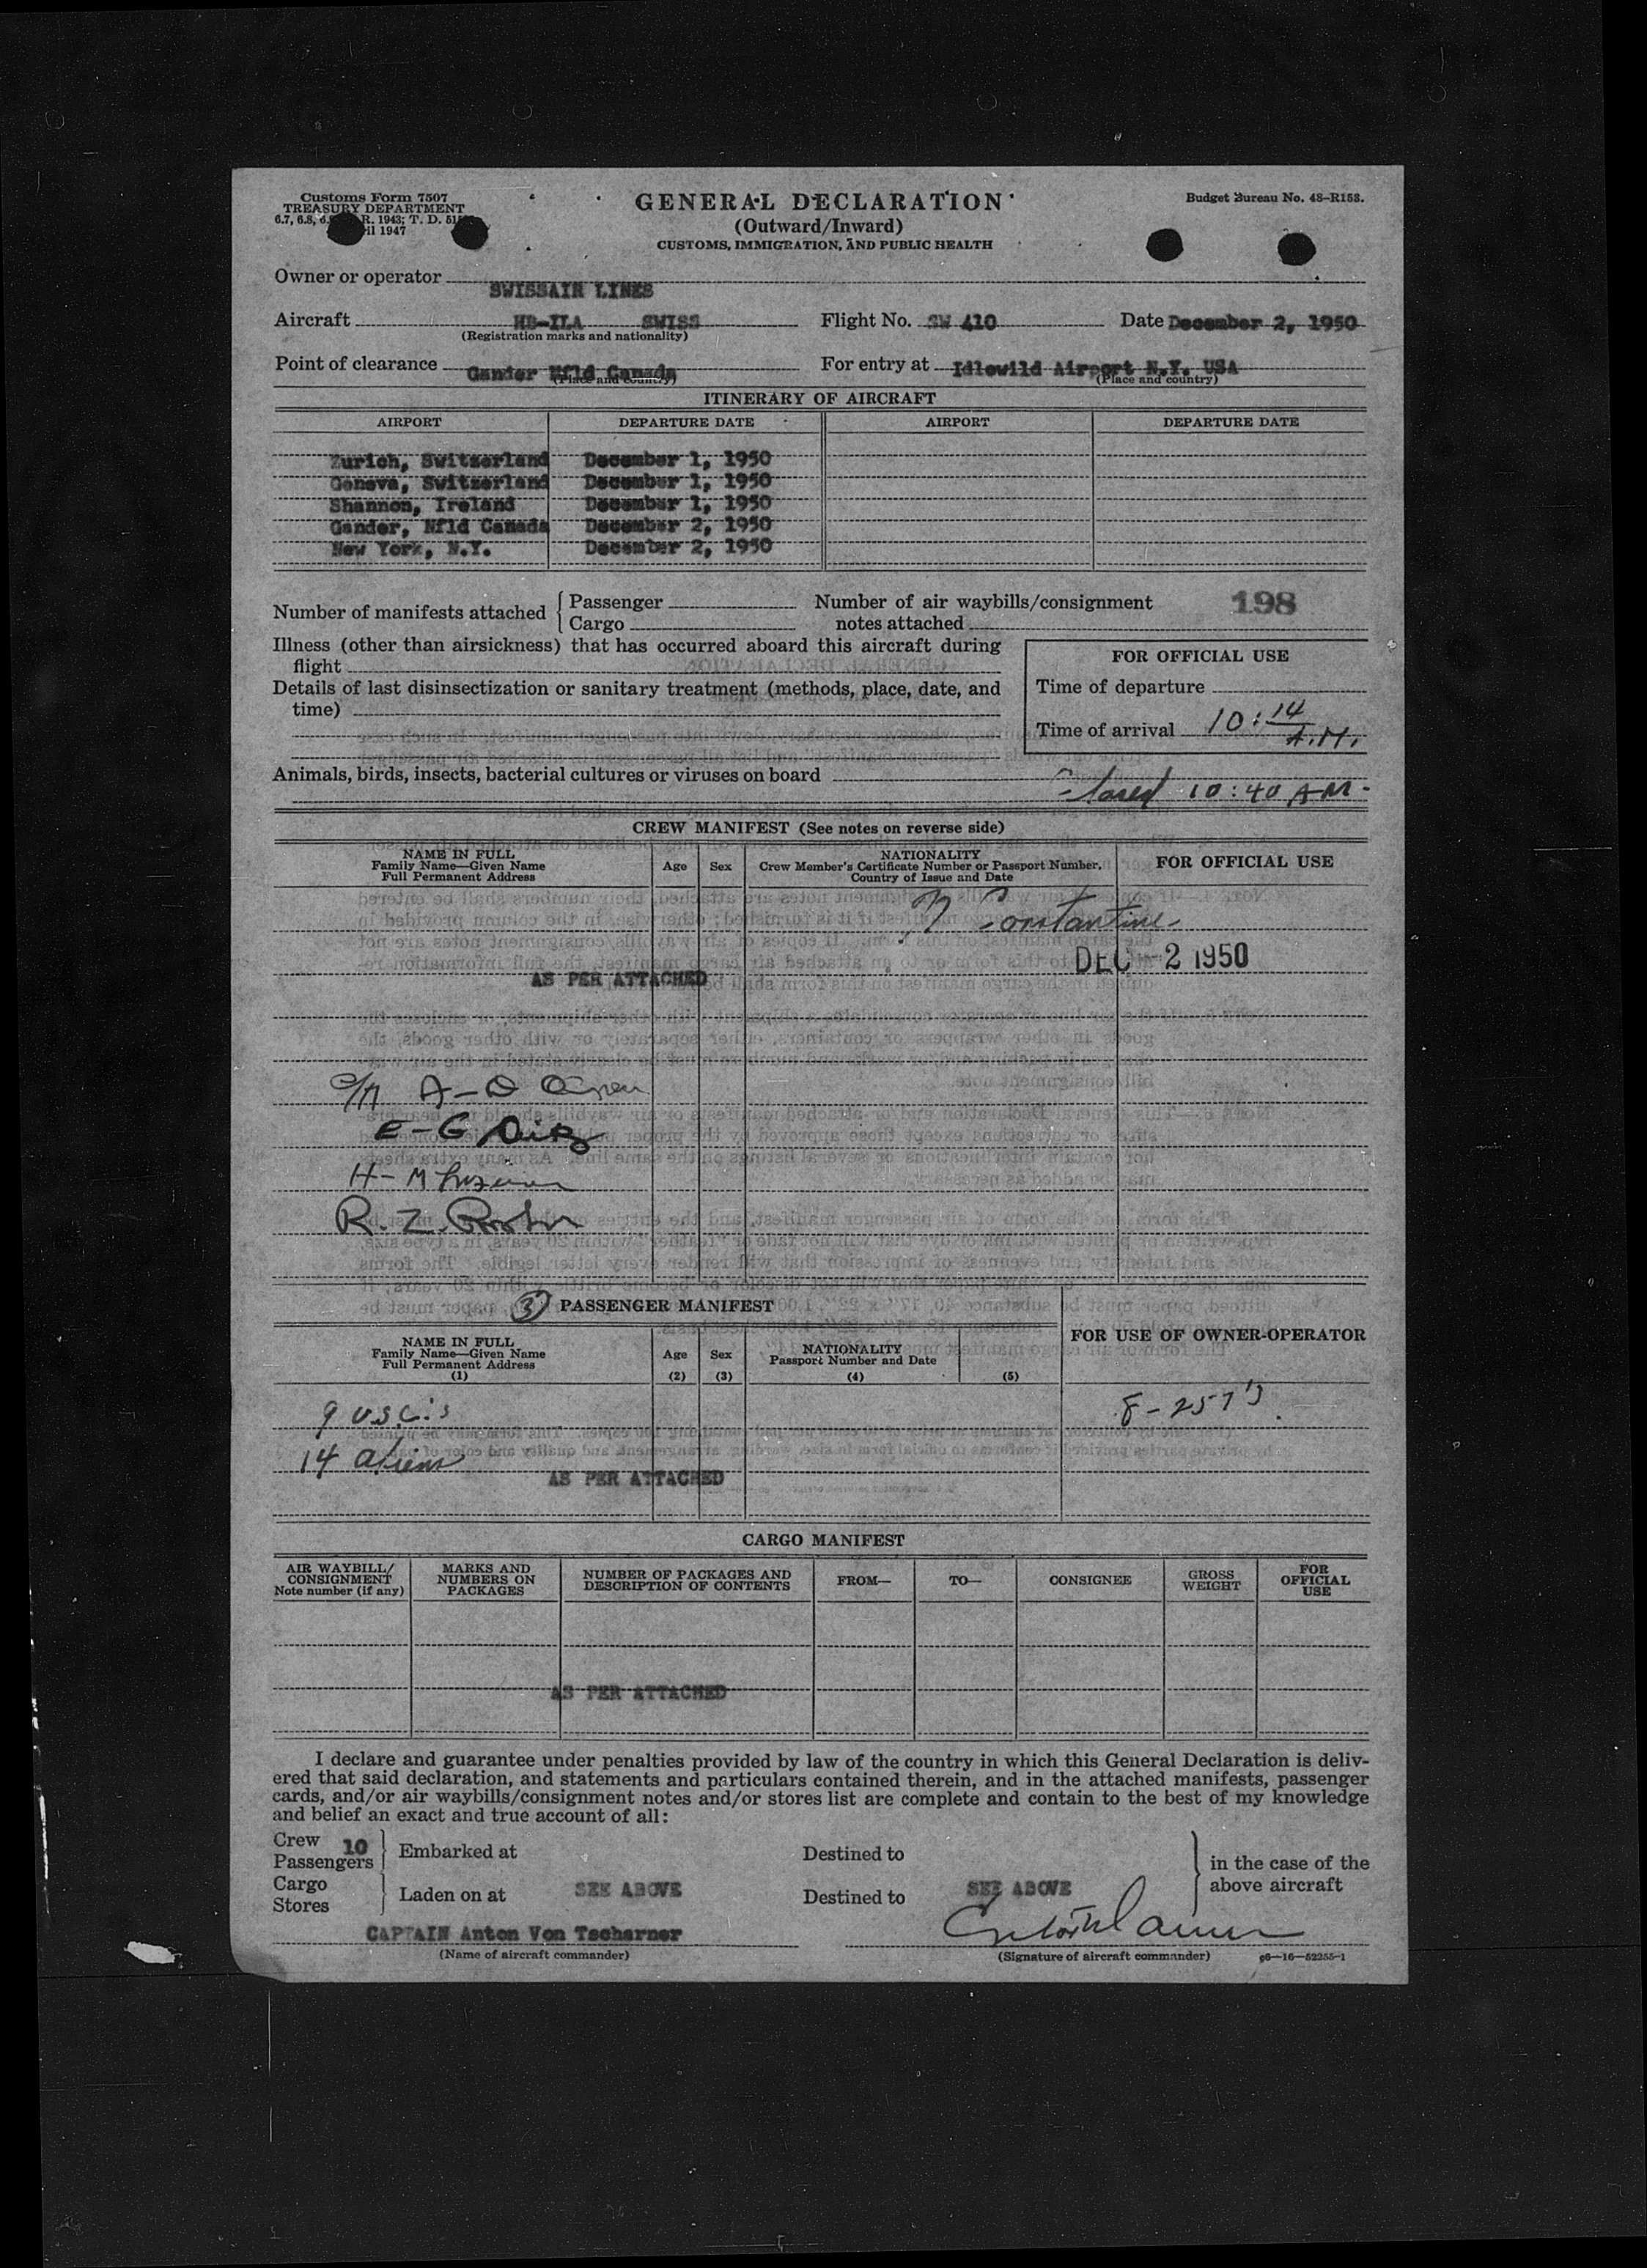 Customs Form 7507
TREASURY DEPARTMENT
1947
GENERAL DECLARATION
(Outward/Inward)
CUSTOMS, IMMIGRATION, AND PUBLIC HEALTH
Budget Bureau No. 48-R158.
Owner or operator SWISSAIR LINES
Aircraft HB-ILA SWISS Flight No. SW 410 Date December 2, 1950
(Registration marks and nationality)
Point of clearance Gander Nfld Canada For entry at Idlewild Airport N.Y. USA
(Place and country) (Place and country)
ITINERARY OF AIRCRAFT
AIRPORT DEPARTURE DATE AIRPORT DEPARTURE DATE
Zurich, Switzerland December 1, 1950
Geneva, Switzerland December 1, 1950
Shannon, Ireland December 1, 1950
Gander, Nfld Canada December 2, 1950
New York, N.Y. December 2, 1950
Number of manifests attached { Passenger Cargo
Number of air waybills/consignment notes attached 198
Illness (other than airsickness) that has occurred aboard this aircraft during
flight
Details of last disinsectization or sanitary treatment (methods, place, date, and
time)
FOR OFFICIAL USE
Time of departure
Time of arrival 10:14 A.M.
Animals, birds, insects, bacterial cultures or viruses on board
10:40 AM
CREW MANIFEST (See notes on reverse side)
NAME IN FULL
Family Name—Given Name
Full Permanent Address
Age Sex
NATIONALITY
Crew Member's Certificate Number or Passport Number,
Country of Issue and Date
FOR OFFICIAL USE
Constantine
DEC -2 1950
AS PER ATTACHED
R. Z.
(3) PASSENGER MANIFEST
NAME IN FULL
Family Name—Given Name
Full Permanent Address
(1)
Age
(2)
Sex
(3)
NATIONALITY
Passport Number and Date
(4)
(5)
FOR USE OF OWNER-OPERATOR
9 USC's
8-257's
14 aliens
AS PER ATTACHED
CARGO MANIFEST
AIR WAYBILL/CONSIGNMENT Note number (if any)
MARKS AND NUMBERS ON PACKAGES
NUMBER OF PACKAGES AND DESCRIPTION OF CONTENTS
FROM— TO— CONSIGNEE GROSS WEIGHT FOR OFFICIAL USE
AS PER ATTACHED
I declare and guarantee under penalties provided by law of the country in which this General Declaration is deliv-
ered that said declaration, and statements and particulars contained therein, and in the attached manifests, passenger
cards, and/or air waybills/consignment notes and/or stores list are complete and contain to the best of my knowledge
and belief an exact and true account of all:
Crew 10
Passengers } Embarked at Destined to
Cargo
Stores } Laden on at SEE ABOVE Destined to SEE ABOVE
in the case of the
above aircraft
CAPTAIN Anton Von Tscharner
(Name of aircraft commander) (Signature of aircraft commander) c6—16—52255-1